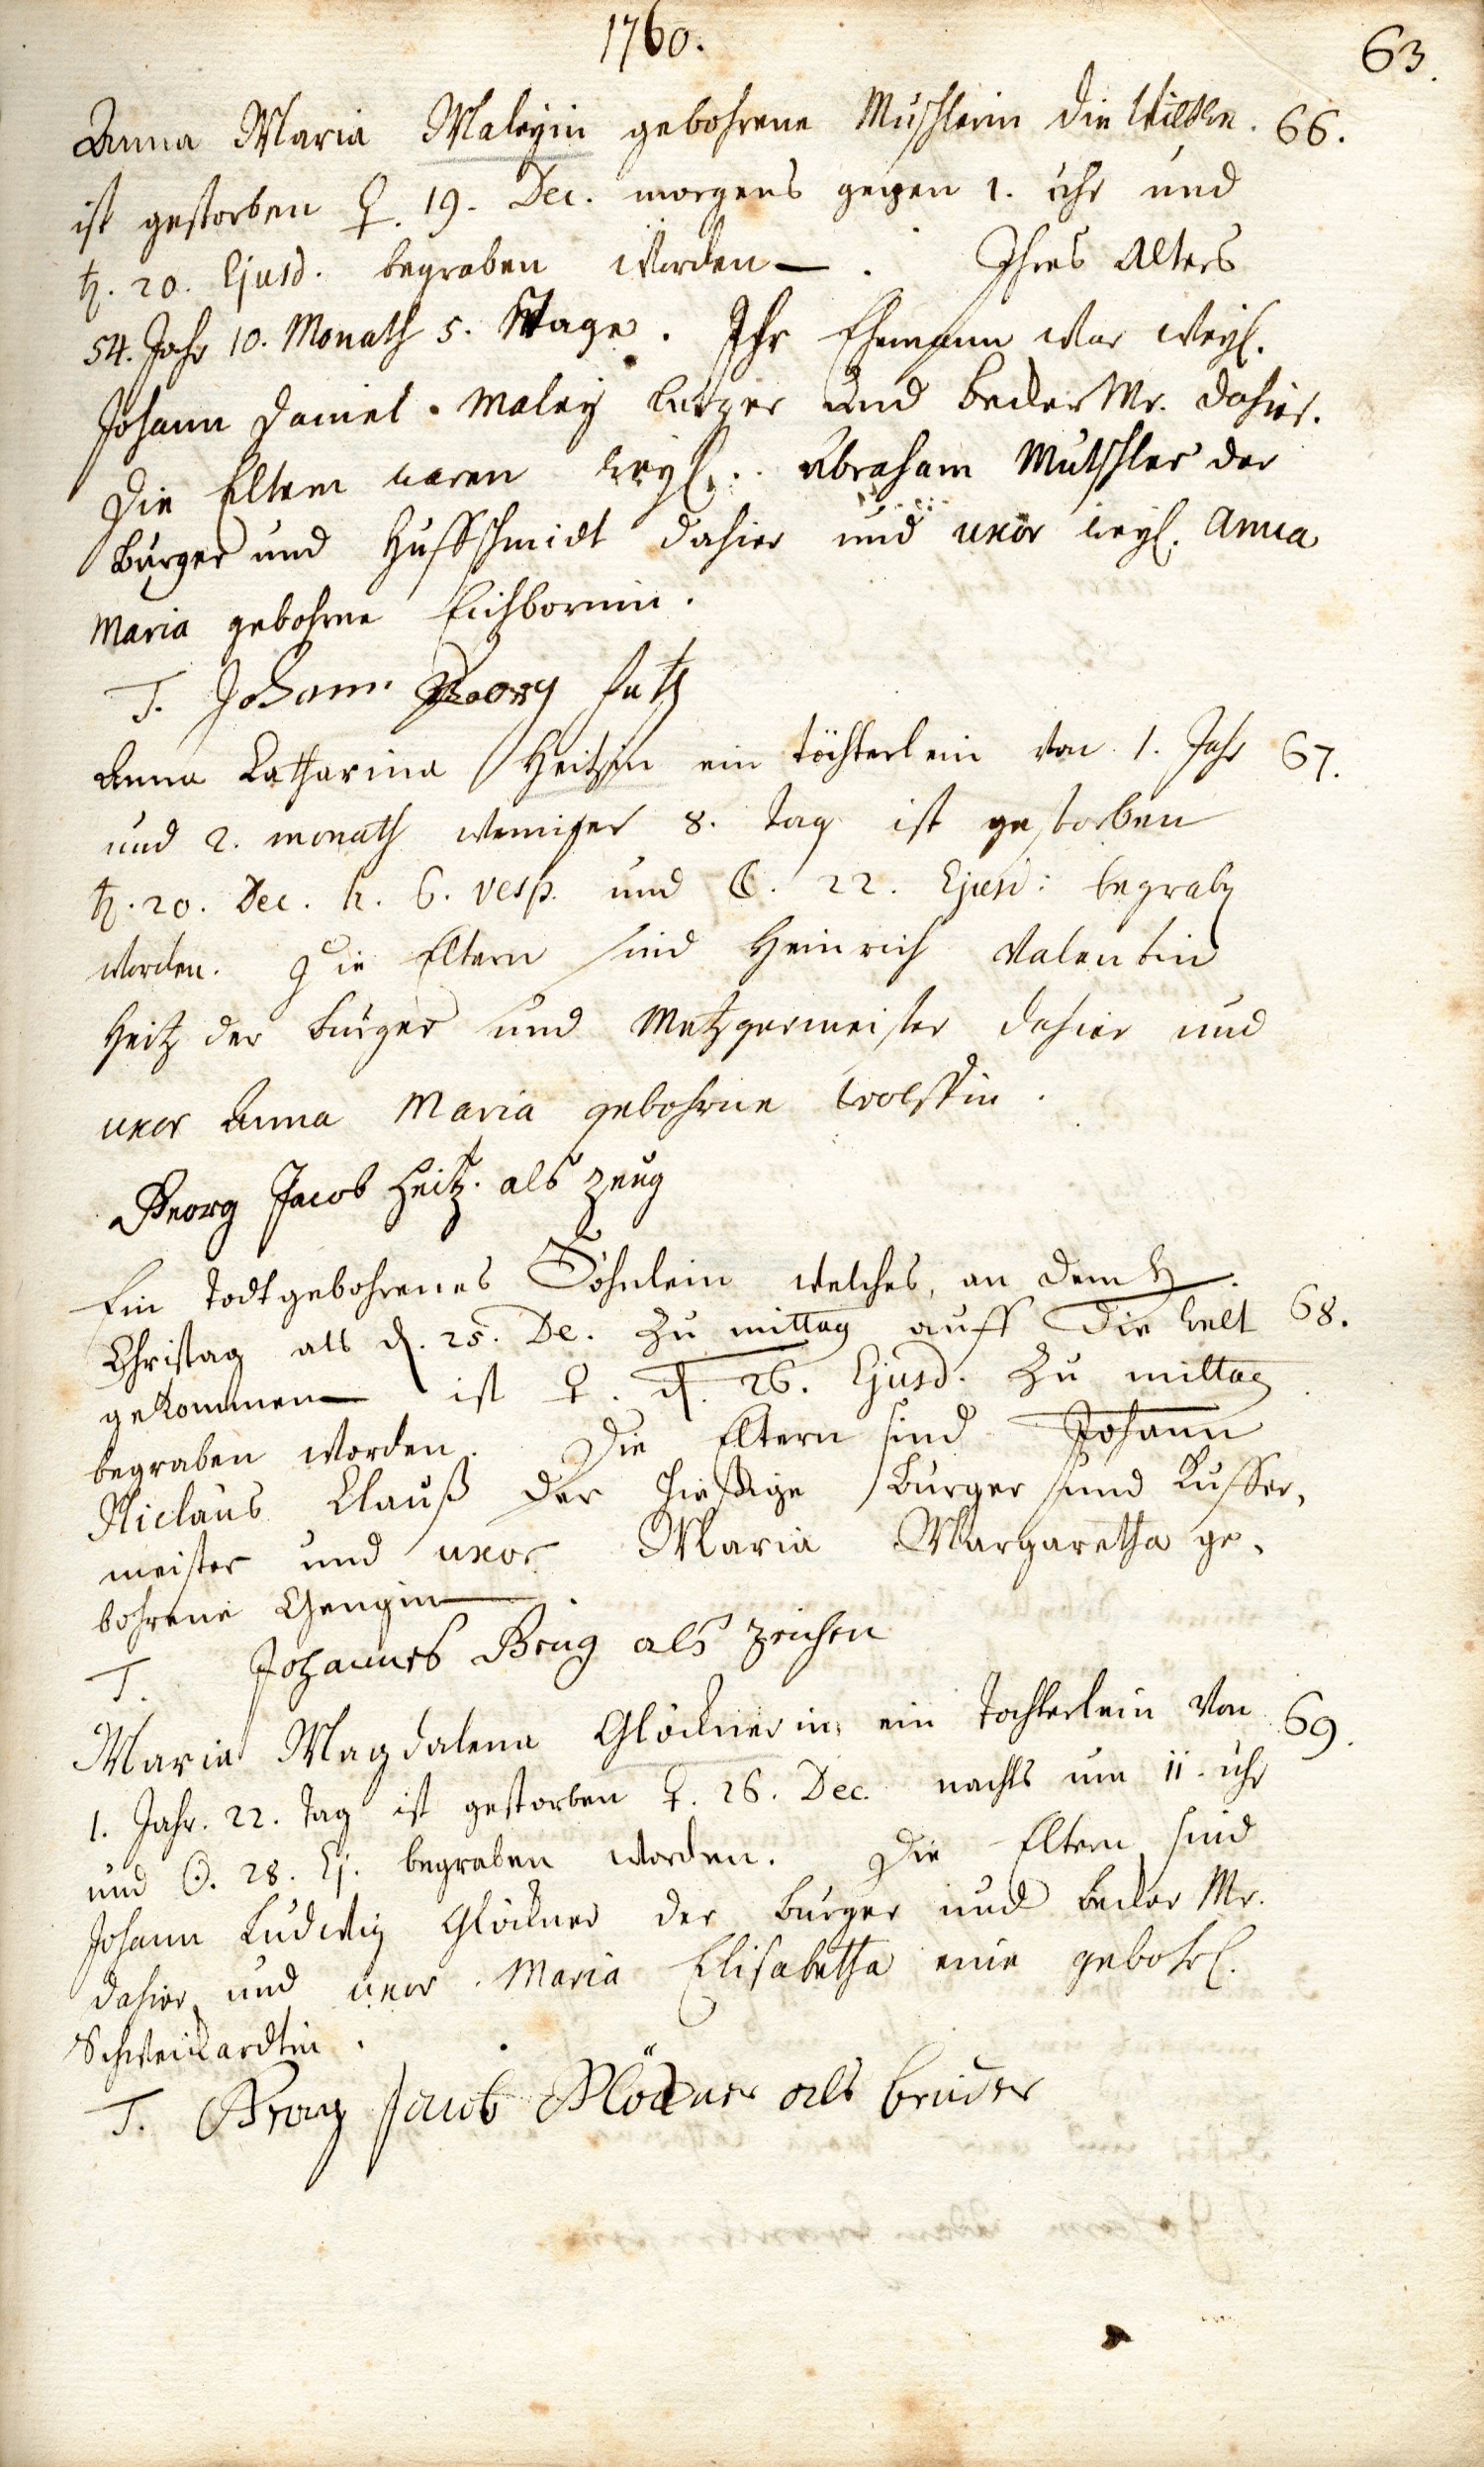 1760.
63.
Anna Maria Maleyin gebohrene Mutschlerin die Wittbe. 66.
ist gestorben ♀. 19. Dec. morgens gegen 1. uhr und
♄. 20. Ejusd. begraben worden. Ihres Alters
54. Jahr 10. Monath 5. Tage. Ihr Ehemann war weyl.
Johann Daniel Maley burger und becker Mr. dahier.
Die Eltern waren weyl. Abraham Mutschler der
burger und Huffschmidt dahier und uxor weyl. Anna
Maria gebohrne Eichbornin.
T. Johann Georg
Anna Catharina Heitzin ein töchterlein von 1. Jahr 67.
und 2. monath weniger 8. tag ist gestorben
♄. 20. Dec. h. 6. vesp. und ☾. 22. Ejusd: begraben
worden. Die Eltern sind Heinrich Valentin
Heitz der burger und Metzgermeister dahier und
uxor Anna Maria gebohrne Wolffin.
Georg Jacob Heitz. als zeug
Ein todtgebohrenes Söhnlein welches, an dem H.
Christag als d. 25. De. zu mittag auff die welt 68.
gekommen ist ♀. d. 26. Ejusd. zu mittag
begraben worden. Die Eltern sind Johann
Niclaus Clauß der hießige Burger und Kuffer,
meister und uxor Maria Margaretha ge,
bohrene Gengin.
T. Johannes Geng als zeichen
Maria Magdalena Glöcknerin ein tochterlein von 69.
1. Jahr. 22. tag ist gestorben ♀. 26. Dec. nachts um 11. uhr
und ☉. 28. Ej. begraben worden. Die Eltern sind
Johann Ludwig Glöckner der burger und becker Mr.
dahier und uxor. Maria Elisabetha eine gebohrl.
Schweickardtin.
T. Georg Jacob Glöckner als bruder